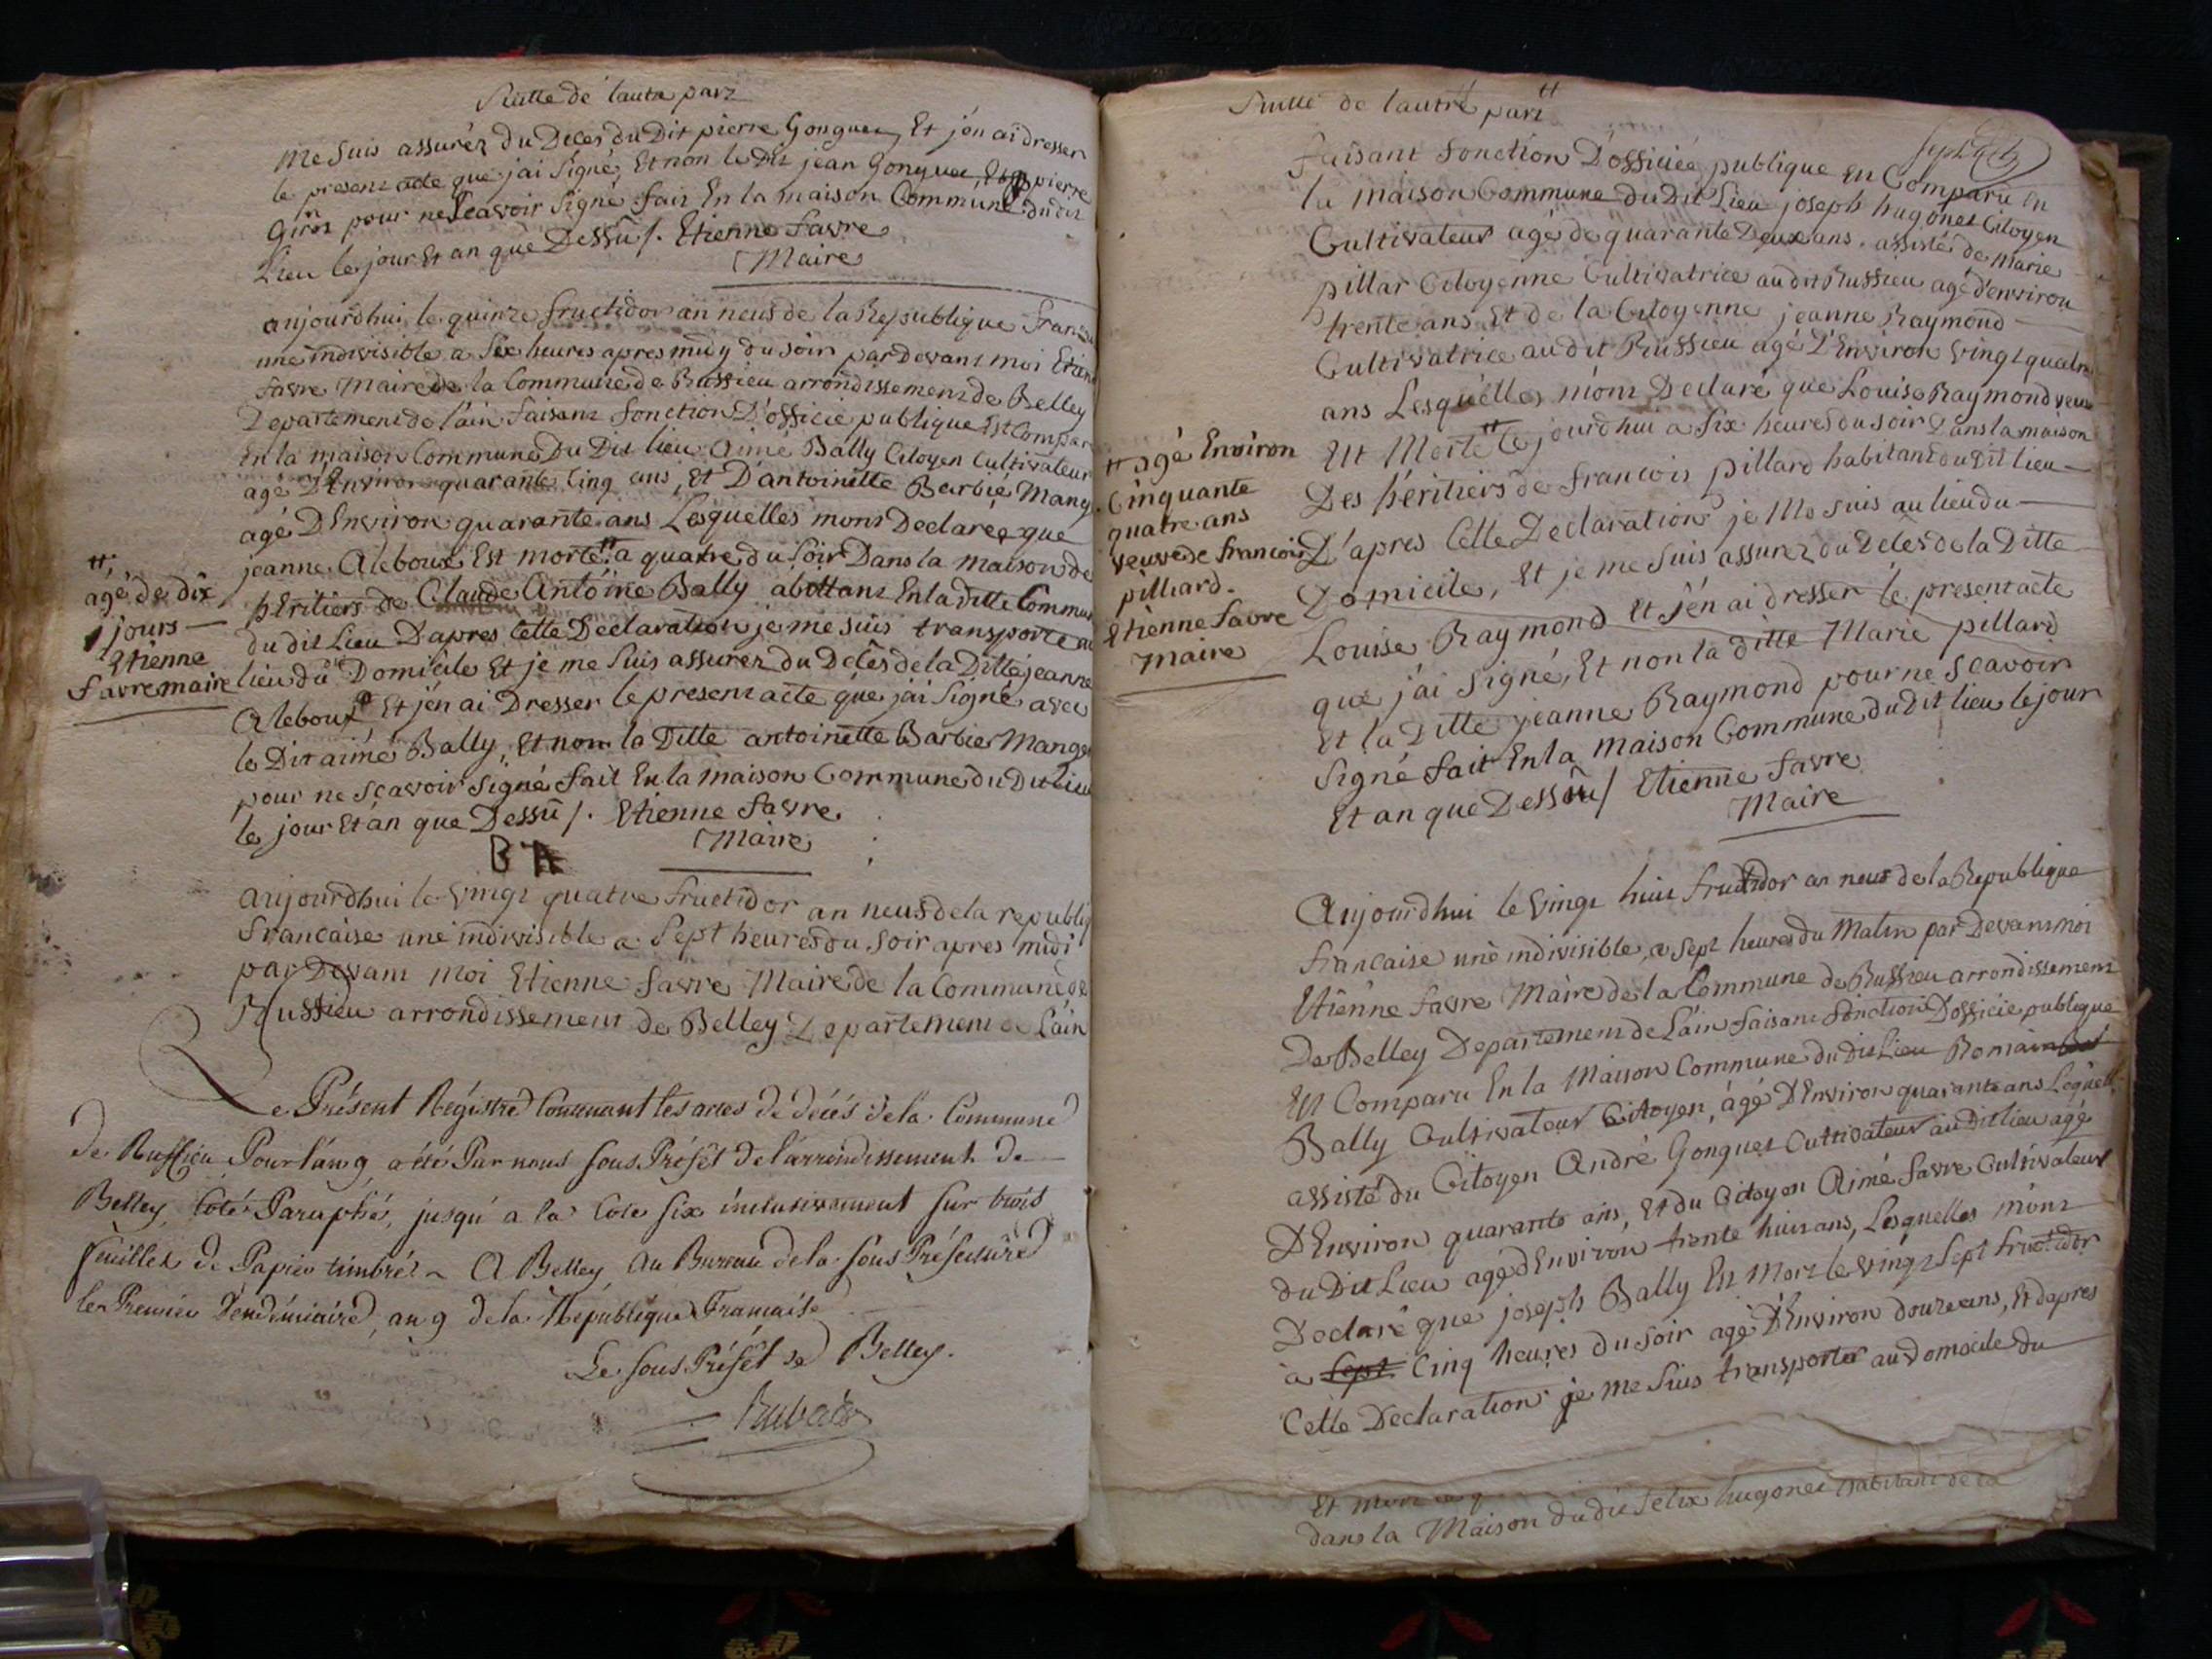 Suitte de l'autre part
Me Suis assurér du Deces du Dit pierre Gonguet, Et j'en ai dresser
le present acte que j'ai Signé, Et non le Dit jean Gonguet, pierre
pour ne Scavoir Signé fait En la maison Commune du dit
Lieu le jour Et an que Dessû /. Etienne favre
Maire
aujourdhui le quinze fructidor an neuf de la Republique
une indivisible a Six heures apres midy du soir par Devant moi
favre Maire de la Commune de Russieu arrondissement de Belley
Departement de l'ain faisant fonction D'officié publique Est
En la maison Commune Du Dit lieu Aimé Bally Citoyen Cultivateur
agé D'Environ quarante Cinq ans, Et D'antoinette Barbié
agé D'Environ quarante ans Lesquelles mont Declarée que
jeanne Aleboux Est morte tt a quatre du soir Dans la maison de
hEritiers de Claude Antoine Bally abittant En la ditte
du dit Lieu D'apres Cette Declaration je me suis transporté au
lieu du Domicile Et je me Suis assurer du Delès de la Ditte jeanne
Aleboux Et j'en ai Dresser le present acte que j'ai Signé avec
le Dit aimé Bally, Et non la Ditte antoinette Barbier
pour ne scavoir Signé fait En la maison Commune du Dit Lieu
le jour Et an que Dessû /. Etienne favre
Maire
B A
tt
agé de dix
jours
Etienne
favre maire
aujourdhui le vingt quatre fructidor an neuf de la
francaise une indivisible a Sept heures du soir apres midi
par Devant moi Etienne favre Maire de la Commune de
Russieu arrondissement de Belley Departement de L'ain
Le Présent Régistre Contenant les actes de décés de la Commune
de Ruffieu Pour l'an 9 a été Par nous Sous Préfet de l'arrondissement de
Belley, Coté Paraphé, jusqu'a la Cote Six inclusivement Sur trois
feuillets de Papier timbré. A Belley, au Bureau de la Sous Préfecture
le Premier Vendémiaire, an 9 de la République Francaise
Le Sous Préfet de Belley.
Suitte de l'autre part
faisant fonction D'officiée publique En Comparu En
la maison Commune du Dit Lieu joseph hugonet Citoyen
Cultivateur agé de quarante Deux ans, assistés de Marie
pillar Citoyenne Cultivatrice au dit Russieu agé d'environ
trente ans Et de la Citoyenne jeanne Raymond
Cultivatrice au dit Russieu agé D'Environ vingt quatre
ans Lesquelles m'ont Declaré que Louise Raymond
Est Morte tt le jourdhui a Six heures du soir Dans la maison
Des héritiers de francois pillard habitant du Dit lieu
D'apres Cette Declaration je Me suis au lieu du
Domicile, Et je me Suis assurez du Delès de la Ditte
Louise Raymond Et j'en ai dresser le present acte
que j'ai Signé, Et non la ditte Marie pillard
Et la Ditte jeanne Raymond pour ne Scavoir
Signé fait En la Maison Commune du Dit lieu le jour
Et an que Dessû / Etienne favre
Maire
tt agé Environ
Cinquante
quatre ans
veuve de francois
pilliard.
Etienne favre
maire
Aujourdhui le vingt huit fructidor an neuf de la Republique
francaise une indivisible, a Sept heures du Matin par Devant moi
Etienne favre Maire de la Commune de Russieu arrondissement
De Belley Departement de L'ain faisant fonction D'officié publique
Est Comparu En la Maison Commune du dit Lieu Romain
Bally Cultivateur Citoyen, agé D'Environ quarante ans
assisté du Citoyen André Gonguet Cultivateur au Dit lieu agé
D'Environ quarante ans, Et du Citoyen Aimé favre Cultivateur
du Dit Lieu agé d'Environ trente huit ans, Lesquelles m'ont
Declaré que joseph Bally Est Mort le vingt Sept fructidor
à Sept Cinq heures du Soir agé D'Environ douze ans, Et dapres
Cette Declaration je me suis transporter au domicile du
dans la Maison du dit felix hugonet habitant de la